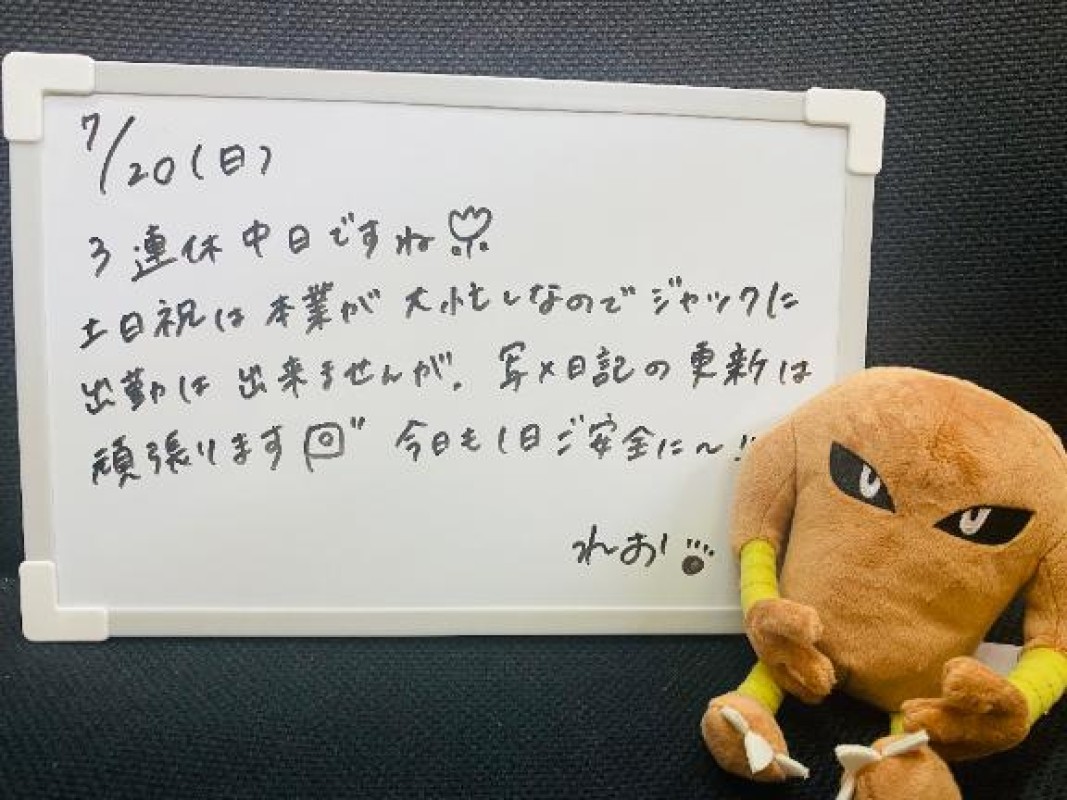 7/20(日)
3連休中日ですね
土日祝は本業が大忙しなのでジャックに
出勤は出来ませんが、写メ日記の更新は
頑張ります 今日も1日ご安全に〜!!
れお